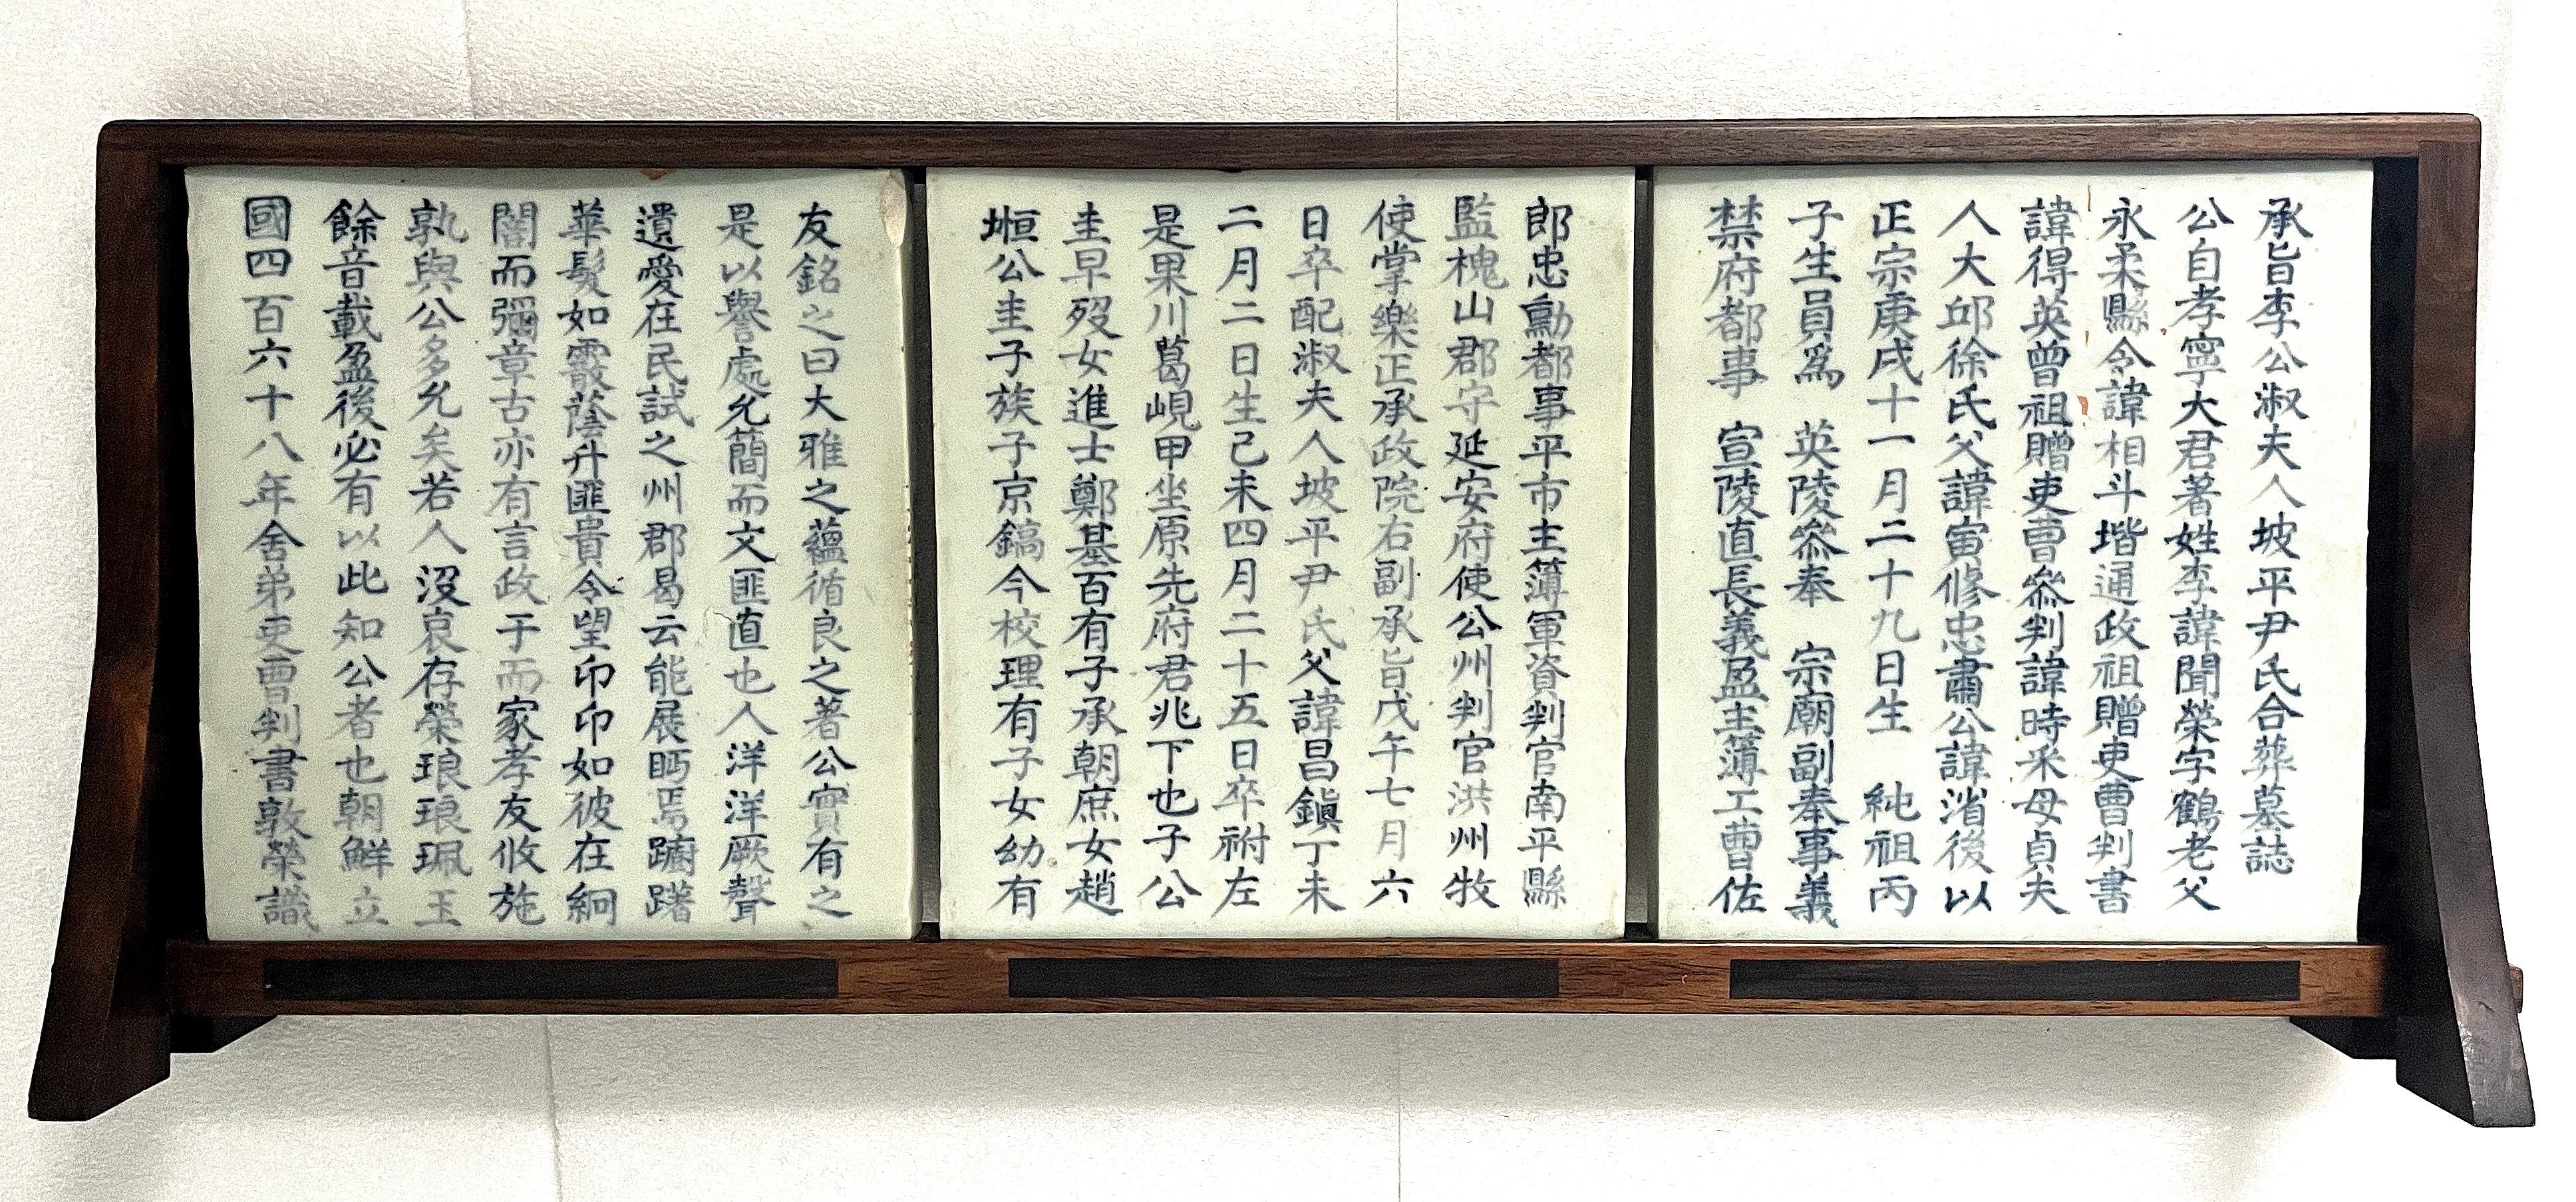 承旨李公淑夫人坡平尹氏合葬墓誌
公自孝寧大君著姓李諱聞榮字鶴老父
永柔縣令諱相斗堦通政祖贈吏曹判書
諱得英曾祖贈吏曹參判諱時采母貞夫
人大邱徐氏父諱宙修忠肅公諱渻後以
正宗庚戌十一月二十九日生 純祖丙
子生員爲 英陵參奉 宗廟副奉事義
禁府都事 宣陵直長義盈主簿工曹佐
郎忠勳都事平市主簿軍資判官南平縣
監槐山郡守延安府使公州判官洪州牧
使掌樂正承政院右副承旨戊午七月六
日卒配淑夫人坡平尹氏父諱昌鎭丁未
二月二日生己未四月二十五日卒祔左
是果川葛峴甲坐原先府君兆下也子公
圭早歿女進士鄭基百有子承朝庶女趙
㮓公圭子族子京鎬今校理有子女幼有
友銘之曰大雅之蘊循良之著公實有之
是以譽處允蕳而文匪直也人洋洋厥聲
遺愛在民試之州郡曷云能展眄焉躕躇
華髮如霰蔭升匪貴令望卬卬如彼在絅
闇而彌章古亦有言政于而家孝友攸施
孰與公多允矣若人沒哀存榮琅琅珮玉
餘音載盈後必有以此知公者也朝鮮立
國四百六十八年舍弟吏曹判書敦榮識